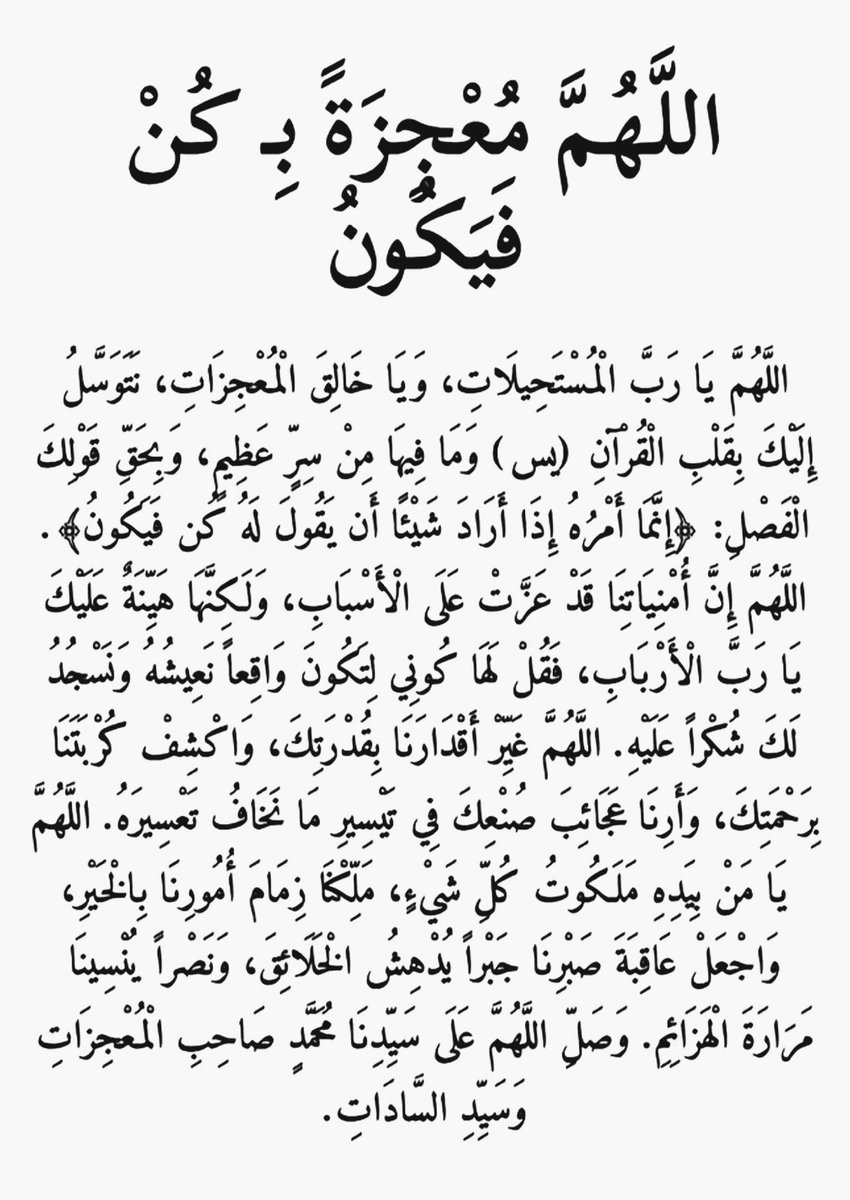 اللَّهُمَّ مُعْجِزَةً بِـ كُنْ
فَيَكُونُ
اللَّهُمَّ يَا رَبَّ الْمُسْتَحِيلَاتِ، وَيَا خَالِقَ الْمُعْجِزَاتِ، نَتَوَسَّلُ
إِلَيْكَ بِقَلْبِ الْقُرْآنِ (يس) وَمَا فِيهَا مِنْ سِرٍّ عَظِيمٍ، وَبِحَقِّ قَوْلِكَ
الْفَصْلِ: ﴿إِنَّمَا أَمْرُهُ إِذَا أَرَادَ شَيْئًا أَن يَقُولَ لَهُ كُن فَيَكُونُ﴾.
اللَّهُمَّ إِنَّ أُمْنِيَاتِنَا قَدْ عَزَّتْ عَلَى الْأَسْبَابِ، وَلَكِنَّهَا هَيِّنَةٌ عَلَيْكَ
يَا رَبَّ الْأَرْبَابِ، فَقُلْ لَهَا كُونِي لِتَكُونَ وَاقِعاً نَعِيشُهُ وَنَسْجُدُ
لَكَ شُكْراً عَلَيْهِ. اللَّهُمَّ غَيِّرْ أَقْدَارَنَا بِقُدْرَتِكَ، وَاكْشِفْ كُرْبَتَنَا
بِرَحْمَتِكَ، وَأَرِنَا عَجَائِبَ صُنْعِكَ فِي تَيْسِيرِ مَا نَخَافُ تَعْسِيرَهُ. اللَّهُمَّ
يَا مَنْ بِيَدِهِ مَلَكُوتُ كُلِّ شَيْءٍ، مَلِّكْنَا زِمَامَ أُمُورِنَا بِالْخَيْرِ،
وَاجْعَلْ عَاقِبَةَ صَبْرِنَا جَبْراً يُدْهِشُ الْخَلَائِقَ، وَنَصْراً يُنْسِينَا
مَرَارَةَ الْهَزَائِمِ. وَصَلِّ اللَّهُمَّ عَلَى سَيِّدِنَا مُحَمَّدٍ صَاحِبِ الْمُعْجِزَاتِ
وَسَيِّدِ السَّادَاتِ.